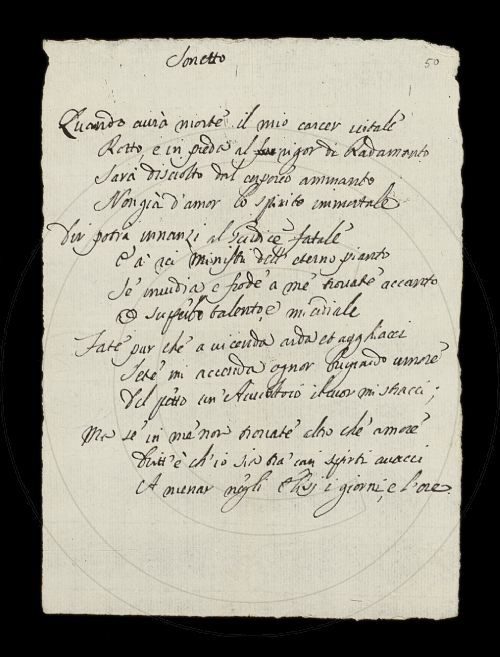 Sonetto
50
Quando avrà morte il mio carcer vitale
Rotto, e in preda al rigor di Radamanto
Sarà disciolto dal corporeo ammanto
Non già d'amor lo spirito immortale
Dir potrà innanzi al Giudice fatale
E a' rei ministri dell' eterno pianto
Se invidia e frode a me trovate accanto
O talento e micidiale
Fate pur che a vicenda arda et agghiacci
Sete mi accenda ognor bramando umore
Del petto un' Avvoltoio il cuor mi stracci;
Ma se in me non trovate altro che amore
Dritt' è ch' io sia tra' cari spirti
A menar negli Elisj i giorni, e l'ore.